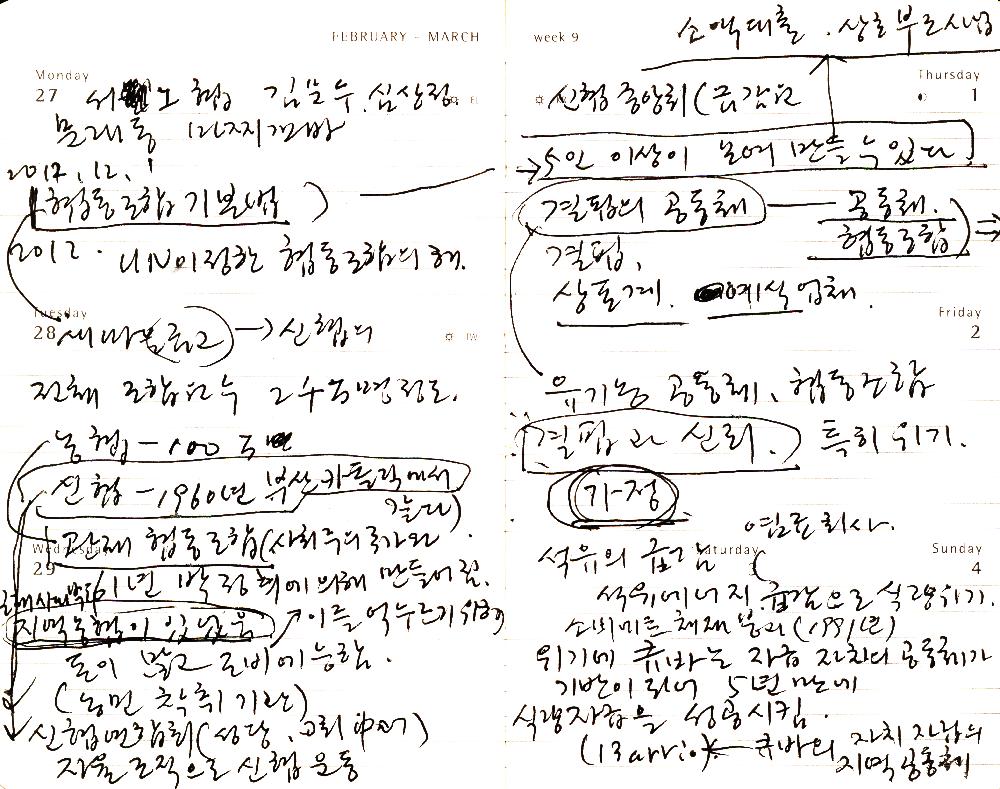 FEBRUARY – MARCH
Monday
27
협 김 수. 심상정
문래동 마지개방
2012. 12. 1
협동조합기본법)
2012. UN이 정한 협동조합의 해.
Tuesday
28
새마을금고 → 신협의
전체 조합 수 2
농협 - 100
신협 - 1960년 부산 카톨릭에서
관제 협동조합(사회주의국가와
Wednesday
29
61년 박정희에 의해 만들어짐.
지역농협이 있었음 → 이를 억누르기 위해
돈이 많고 로비에 능함.
(농민 착취 기관)
신협연합회(성당, 교회
자율 조직으로 신협 운동
week 9
소액대출. 상호부조사업
Thursday
1
신협중앙회(
→ 5인 이상이 모여 만들 수 있다.
결핍의 공동체 — 공동체.
협동조합) ⇒
결핍,
상포계. 예식업체.
Friday
2
유기농 공동체, 협동조합
결핍과 신뢰. 특히 위기.
가정
연료회사.
석유의
Saturday
Sunday
4
석유에너지 급감으로 식량위기.
소비에트 체제 붕괴(1991년)
위기에 쿠바는 자급 자치의 공동체가
기반이 되어 5년 만에
식량자급을 성공시킴.
(Barrio) ← 쿠바의 자치 자립의
지역 공동체